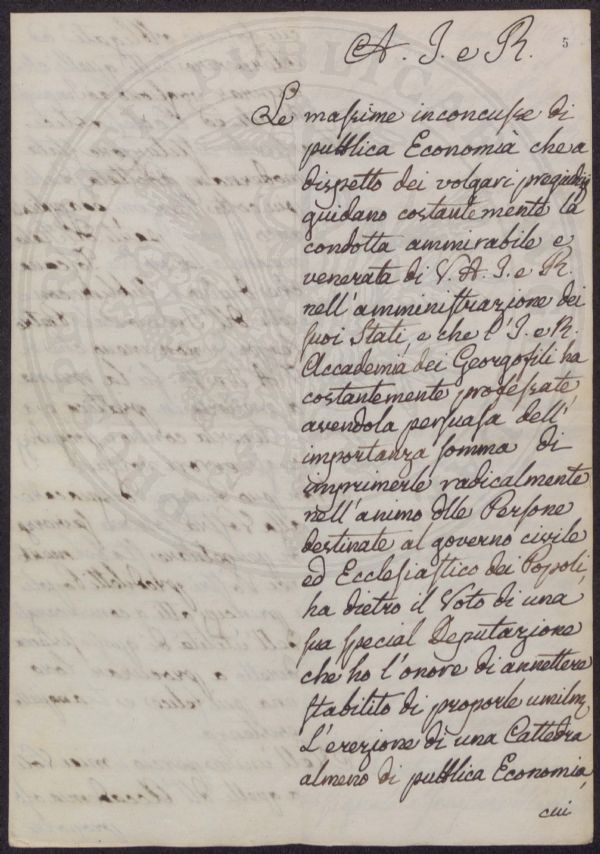 5
A. I. e R.
Le massime inconcusse di
pubblica Economia che a
dispetto dei volgari pregiudizj
guidano costantemente la
condotta ammirabile e
venerata di V. A. I. e R.
nell'amministrazione dei
suoi Stati, e che l'I. e R.
Accademia dei Georgofili ha
costantemente professate
avendola persuasa dell'
importanza somma di
imprimerle radicalmente
nell'animo dlle Persone
destinate al governo civile
ed Ecclesiastico dei Popoli,
ha dietro il Voto di una
sua special Deputazione
che ho l'onore di annettere
stabilito di proporle umilm
L'erezione di una Cattedra
almeno di pubblica Economia,
cui